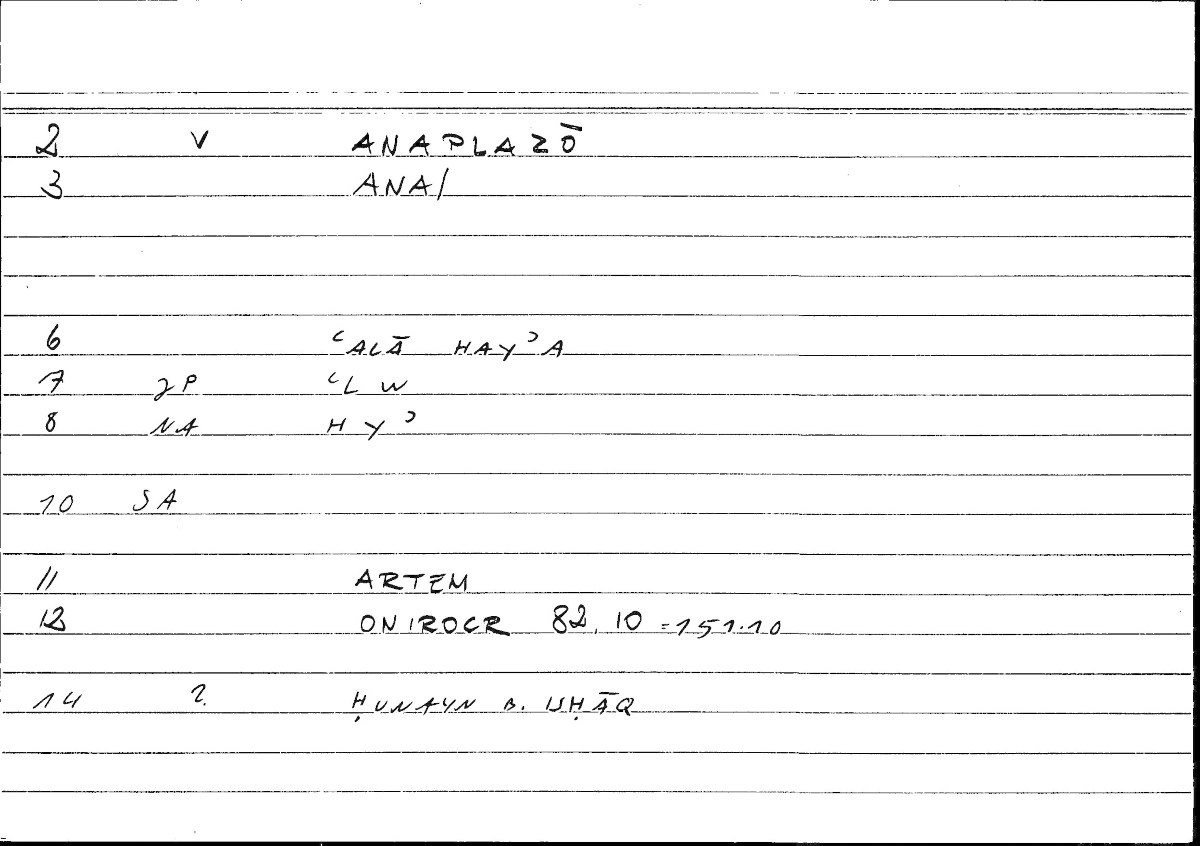 2 V ANAPLAZŌ
3 ANA/
6 ʿALĀ HAYʾA
7 2P ʿL W
8 NA H Y ʾ
10 SA
11 ARTEM
12 ONIROCR 82,10 =151.10
14 2. ḤUNAYN B. ISḤĀQ